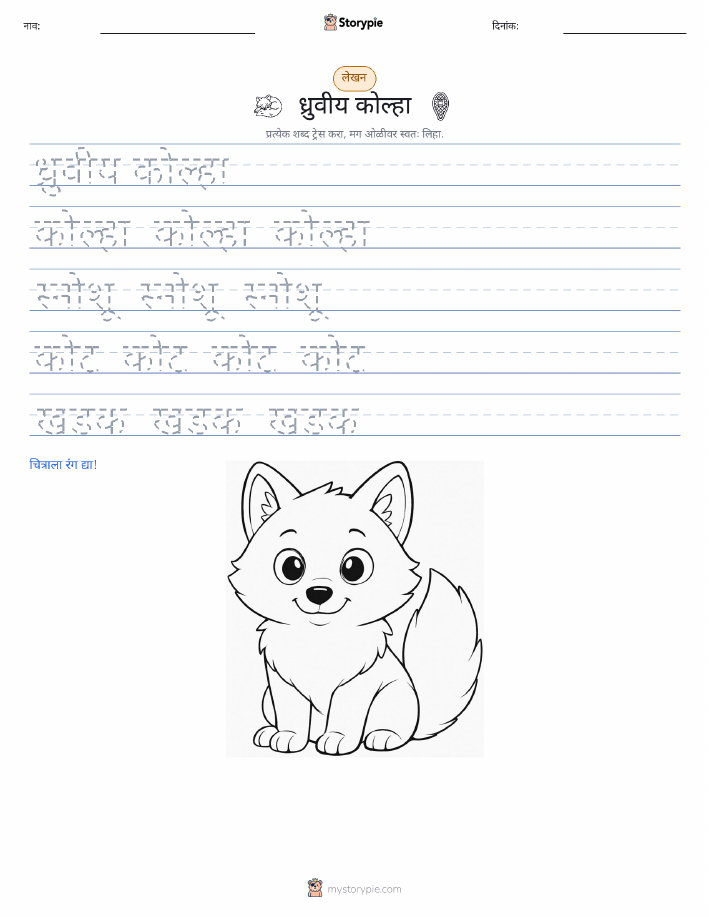 नाव:
Storypie
दिनांक:
लेखन
ध्रुवीय कोल्हा
प्रत्येक शब्द ट्रेस करा, मग ओळीवर स्वतः लिहा.
ध्रुवीय कोल्हा
कोल्हा कोल्हा कोल्हा
स्नोशू स्नोशू स्नोशू
कोट कोट कोट कोट
खडक खडक खडक
चित्राला रंग द्या!
mystorypie.com